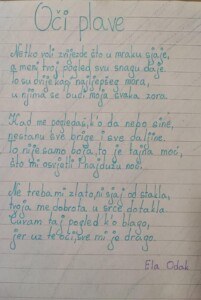 Oči plave
Netko voli zvijezde što u mraku sjaje,
a meni tvoj pogled svu snagu daje.
To su dvije kapi najljepšeg mora,
u njima se budi moja svaka zora.
Kad me pogledaš, k'o da nebo sine,
nestanu sve brige i sve daljine.
To nije samo boja, to je tajna moć,
što mi osvijetli i najdužu noć.
Ne treba mi zlato, ni sjaj od stakla,
tvoja me dobrota u srce dotakla.
Čuvam taj pogled k'o blago,
jer uz te oči, sve mi je drago.
Ela Odak